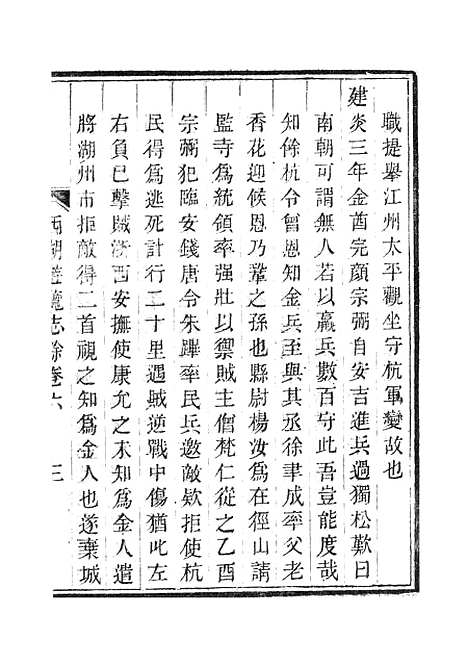 職提舉江州太平觀坐守杭軍變故也
建炎三年金酋完顏宗弼自安吉進兵過獨松歎曰
南朝可謂無人若以羸兵數百守此吾豈能度哉
知餘杭令曾恩知金兵至與其丞徐聿成率父老
香花迎候恩乃鞏之孫也縣尉楊汝為在徑山請
監寺為統領率强壯以禦賊主僧梵仁從之乙酉
宗弼犯臨安錢唐令朱蹕率民兵邀敵欵拒使杭
民得為逃死計行二十里遇賊逆戰中傷猶此左
右負已擊賊浙西安撫使康允之未知為金人遣
將湖州市拒敵得二首視之知為金人也遂棄城
西湖遊覽志餘卷六
三